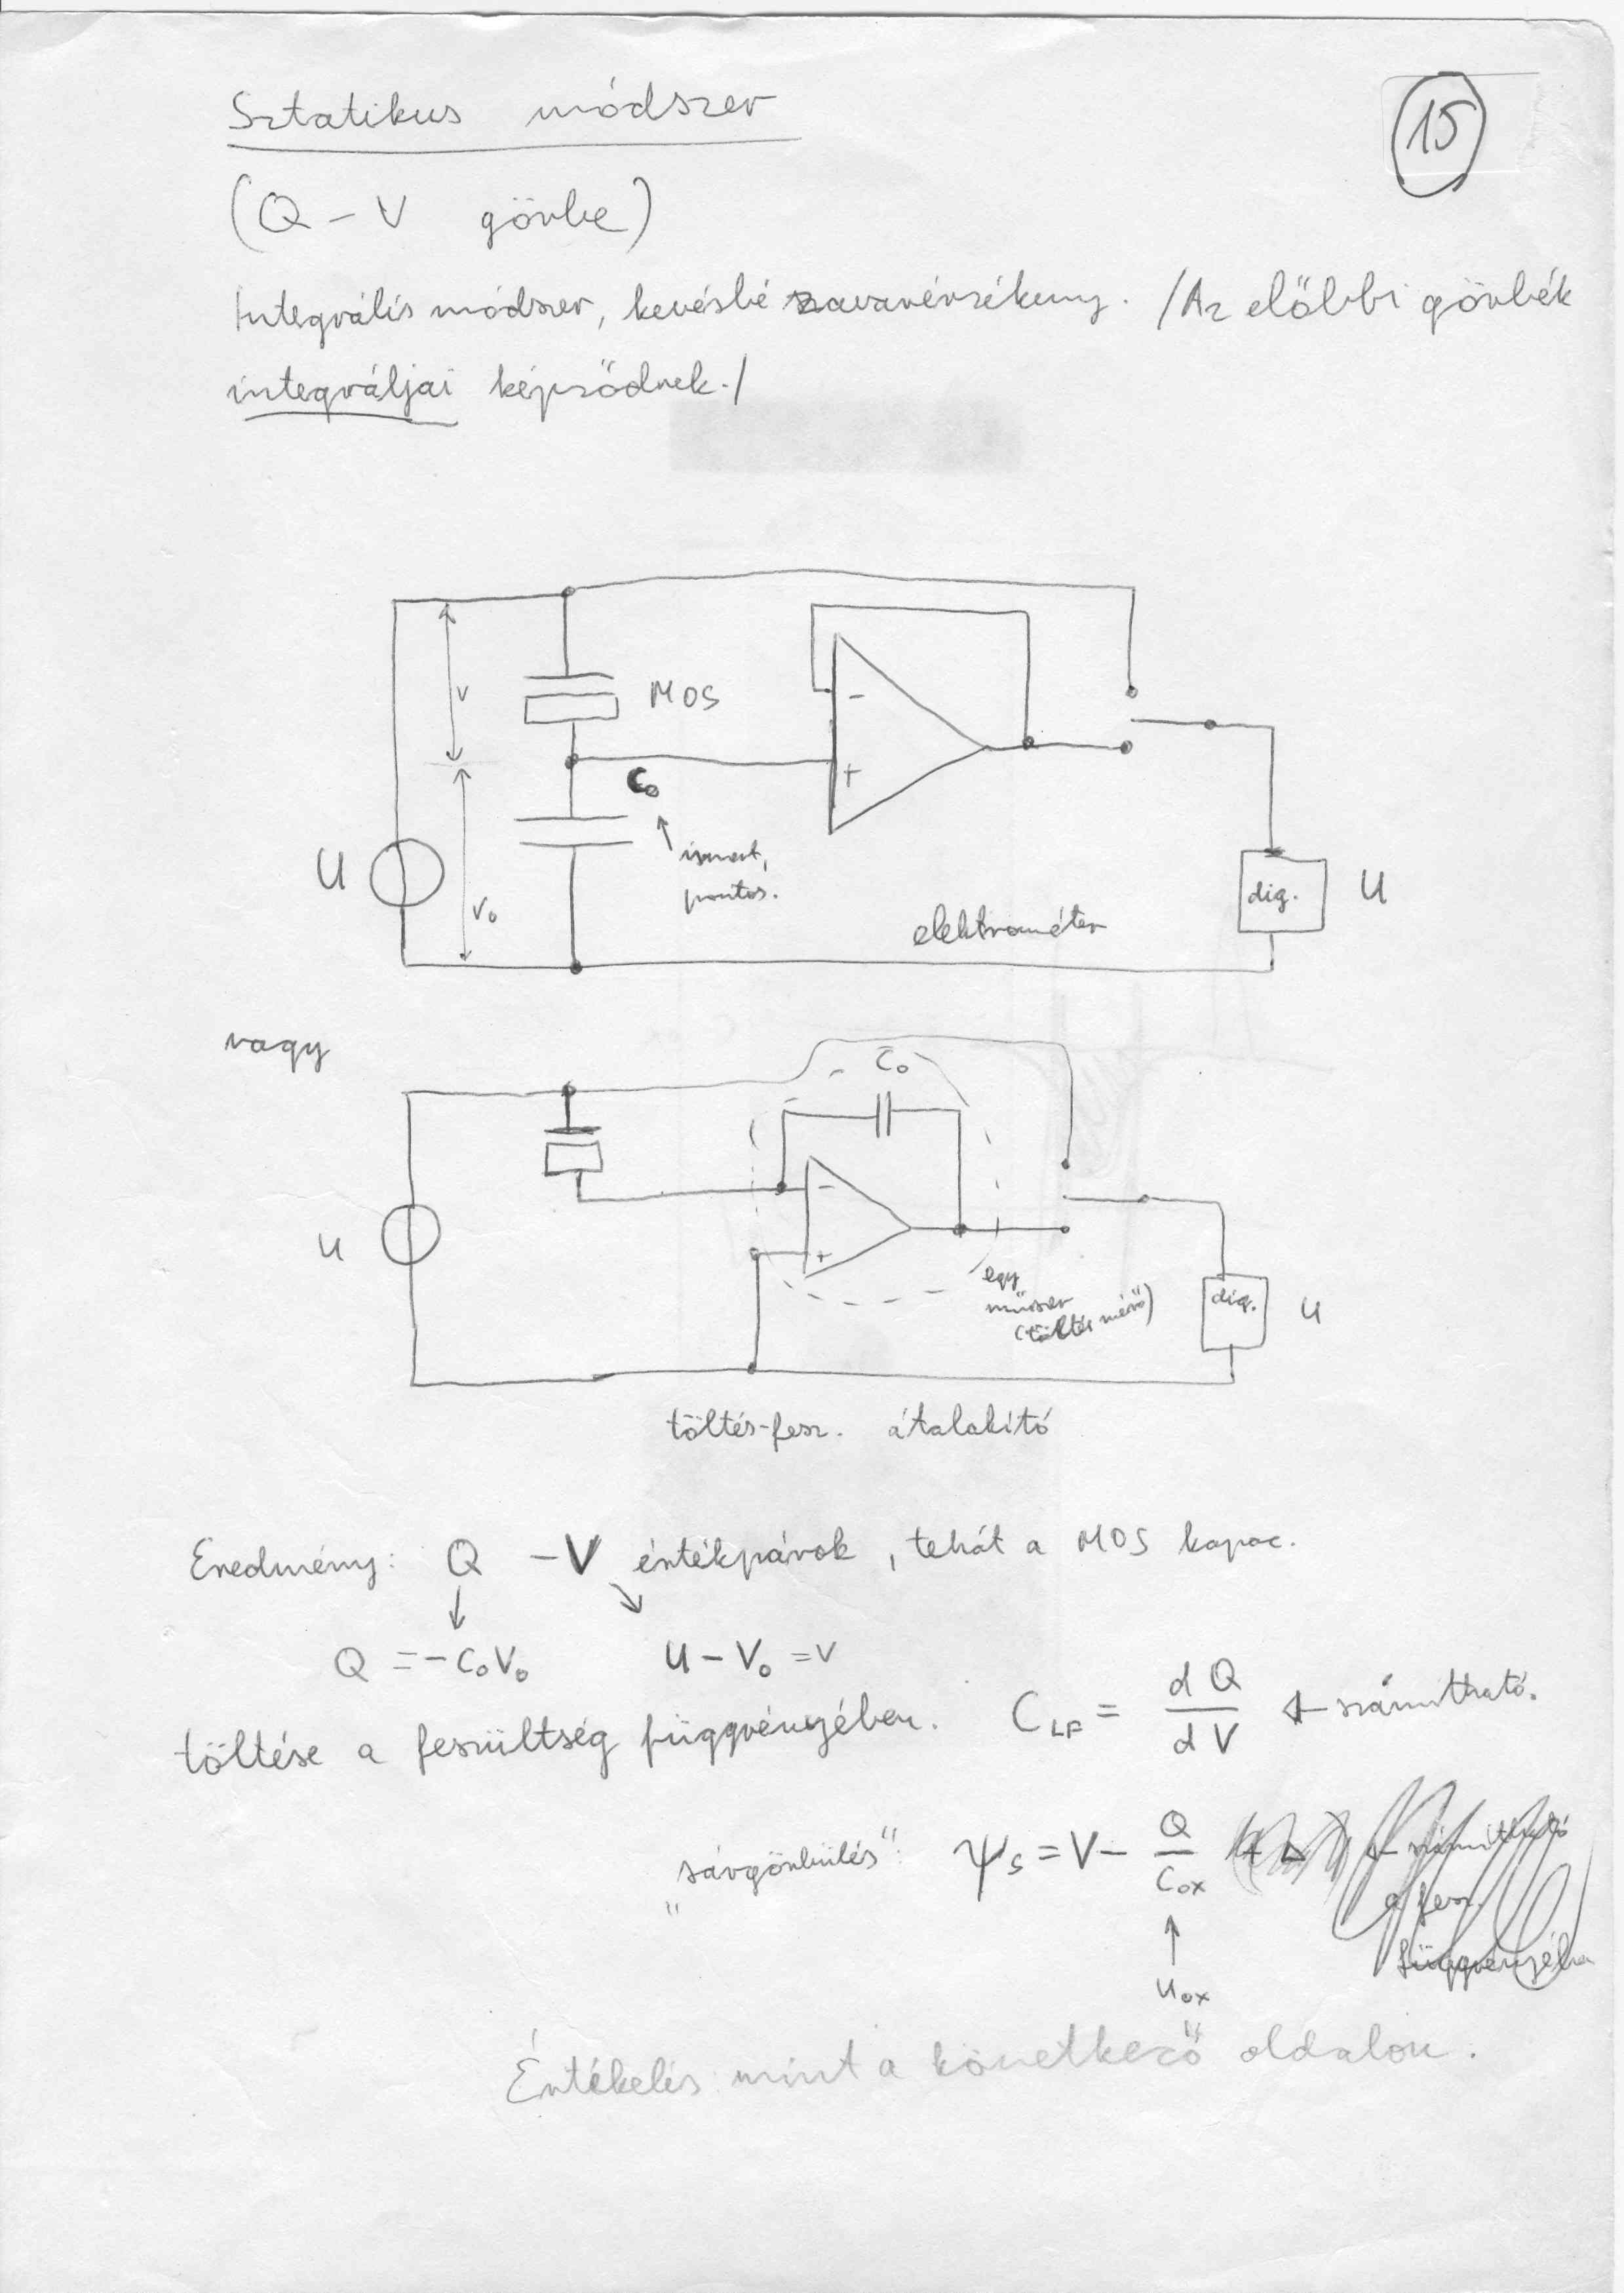 Sztatikus módszer
15
(Q – V görbe)
Integrális módszer, kevésbé zavarérzékeny. /Az előbbi görbék
integráljai képződnek./
V
MOS
-
+
C₀
ismert,
pontos.
U
V₀
elektrométer
dig.
U
vagy
C₀
-
+
U
egy
műszer
(töltésmérő)
dig.
U
töltés-fesz. átalakító
Eredmény: Q – V értékpárok, tehát a MOS kapac.
Q = -C₀V₀ U – V₀ = V
töltése a feszültség függvényében. C_LF = dQ/dV ← számítható.
"sávgörbülés": ψ_s = V – Q/C_ox
U_ox
Értékelés mint a következő oldalon.